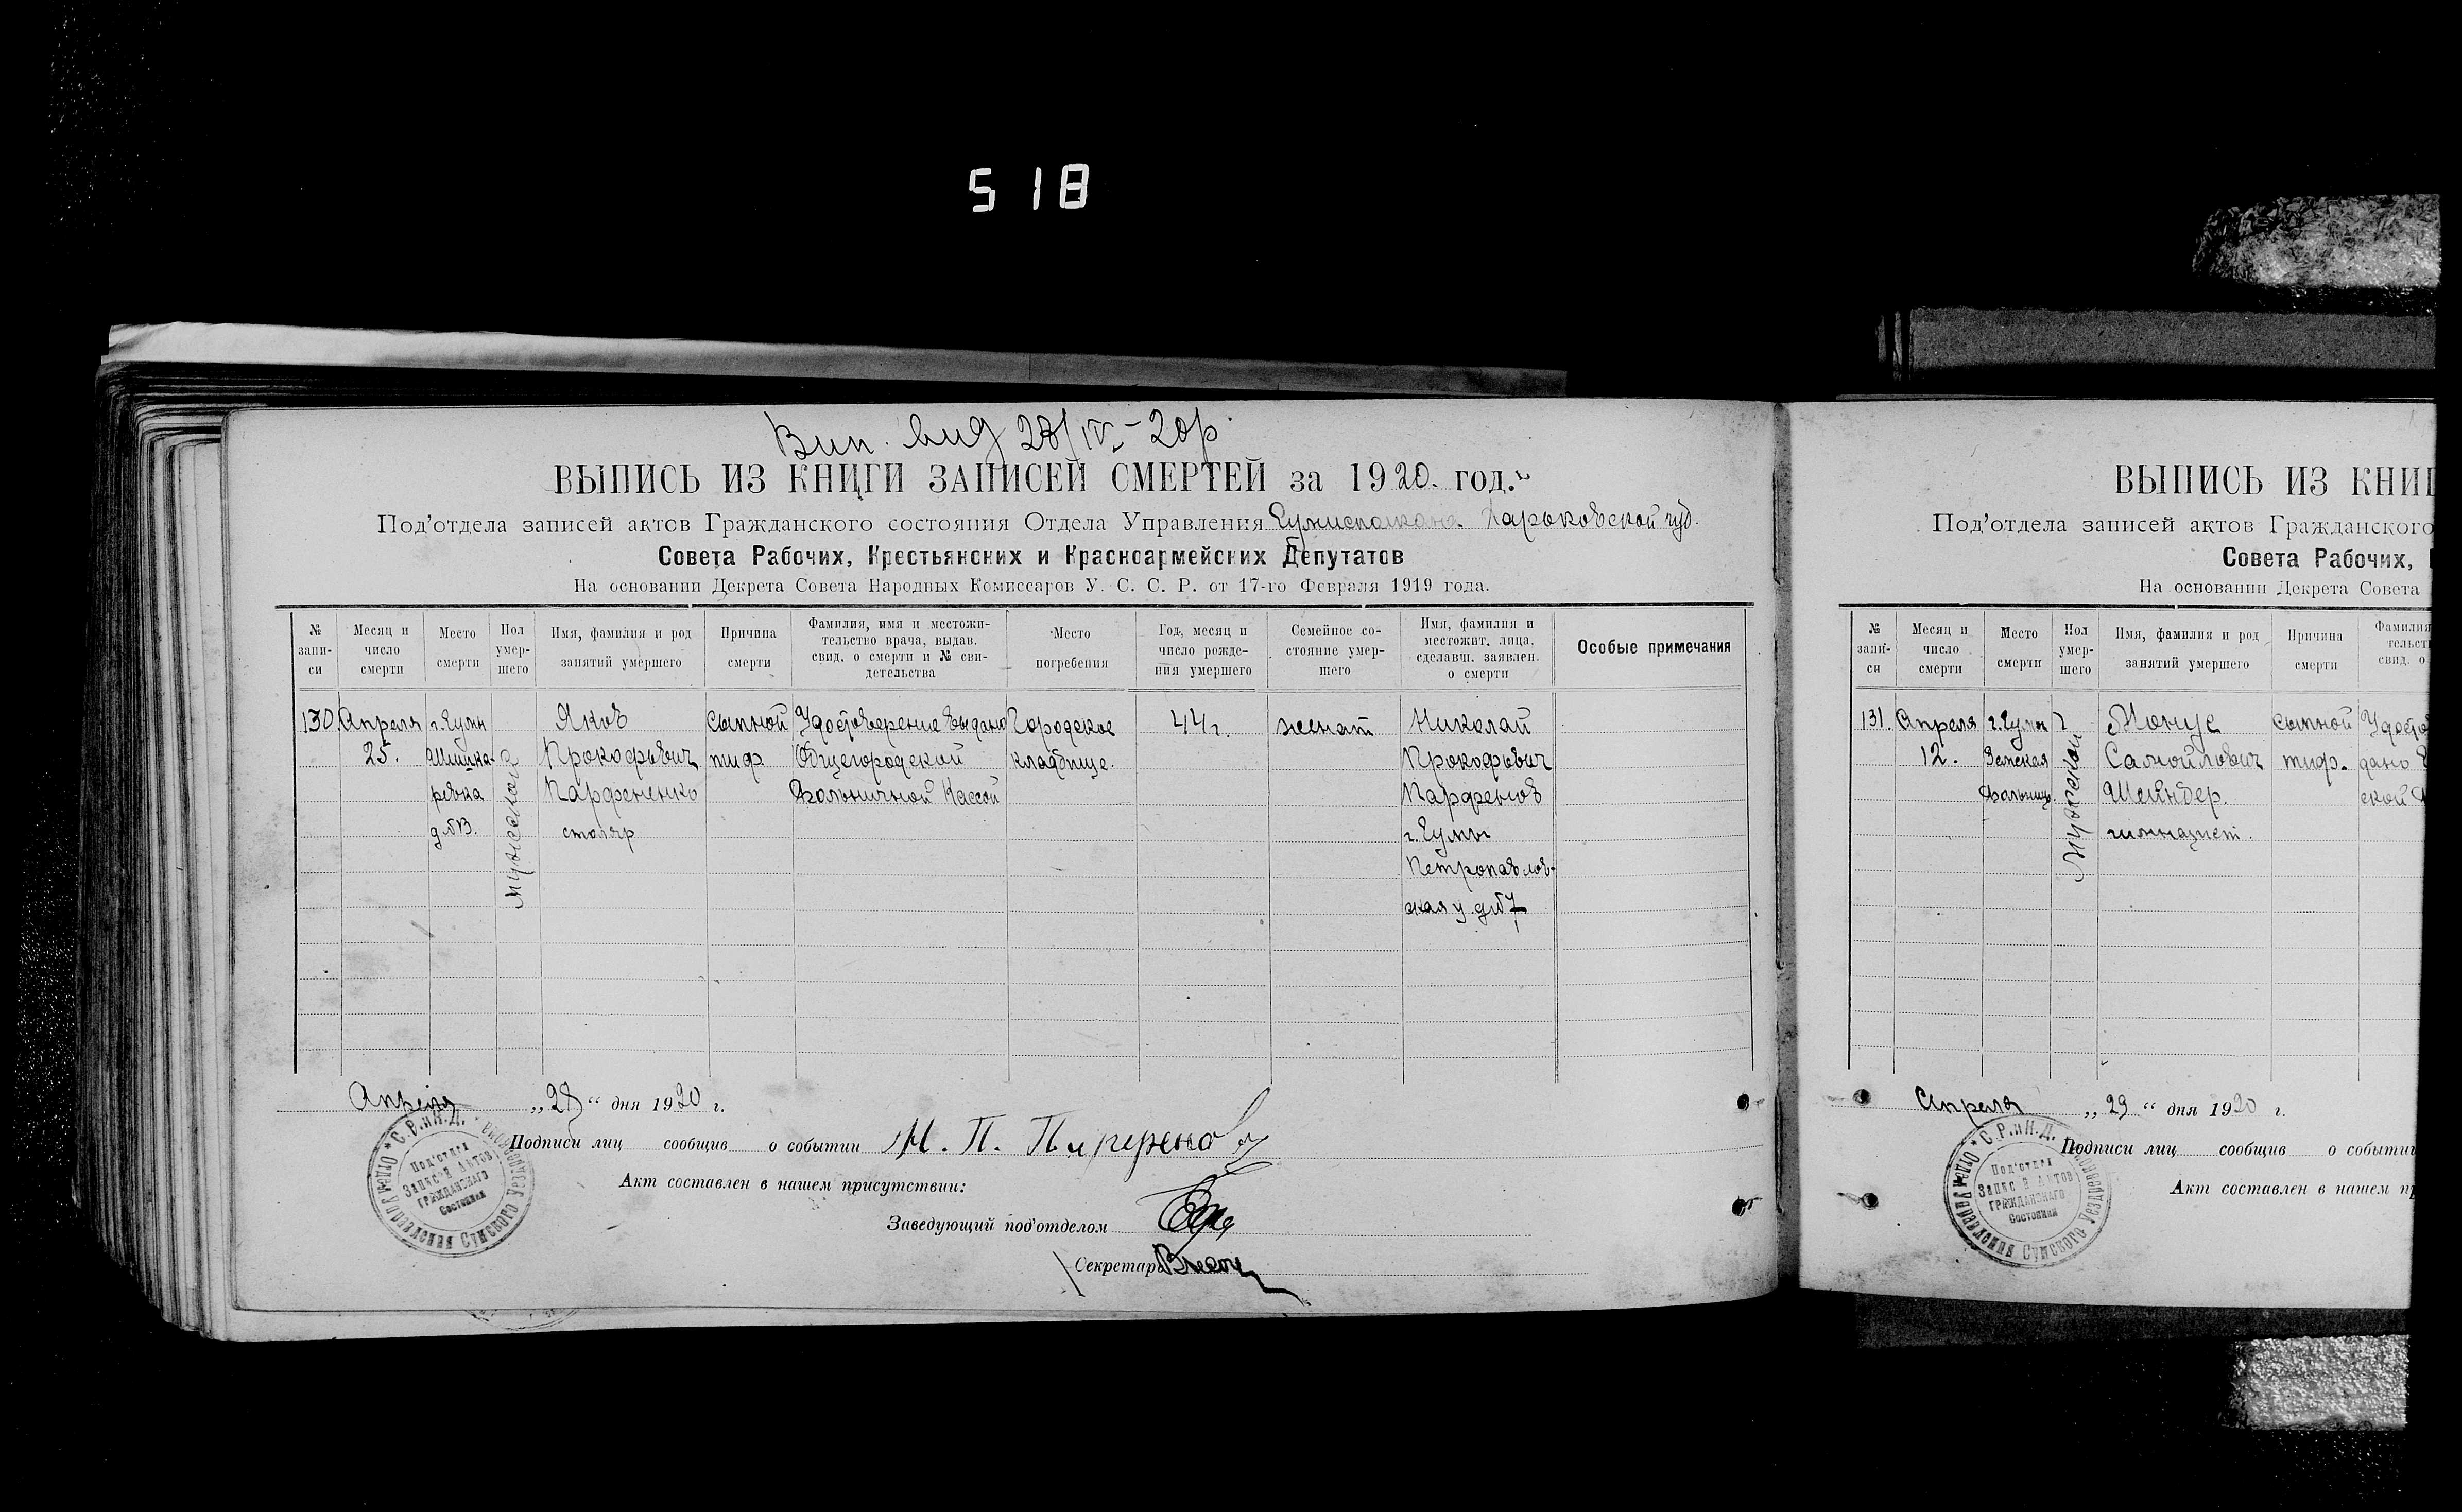 518
Вип. вид 28/IV - 20р.
ВЫПИСЬ ИЗ КНИГИ ЗАПИСЕЙ СМЕРТЕЙ за 1920. год.
Под'отдела записей актов Гражданского состояния Отдела Управления Сумисполкома Харьковской губ.
Совета Рабочих, Крестьянских и Красноармейских Депутатов
На основании Декрета Совета Народных Комиссаров У. С. С. Р. от 17-го Февраля 1919 года.
№ запи-си
Месяц и число смерти
Место смерти
Пол умер-шего
Имя, фамилия и род занятий умершего
Причина смерти
Фамилия, имя и местожи-тельство врача, выдав. свид. о смерти и № сви-детельства
Место погребения
Год, месяц и число рожде-ния умершего
Семейное со-стояние умер-шего
Имя, фамилия и местожит. лица, сделавш. заявлен. о смерти
Особые примечания
130. Апреля г. Сумы Яков сыпной Удостоверение выдано Городское 44 г. женат Николай
25. Прокофьевич тиф Общегородской кладбище. Прокофьевич
ревка Парфененко Больничной Кассой Парфенов
столяр г. Сумы
Петропавлов-
ская у. д № 7
Мужской
Апреля „28“ дня 1920 г.
Подписи лиц сообщив о событии Н. П.
Акт составлен в нашем присутствии:
Заведующий под'отделом
Секретарь
Отдел Управления Сумского Уездревкома
С.Р. и К.Д.
Под'отдел
Записей Актов
Гражданского
Состояния
ВЫПИСЬ ИЗ КНИГ
Под'отдела записей актов Гражданского
Совета Рабочих,
На основании Декрета Совета
№ запи-си
Месяц и число смерти
Место смерти
Пол умер-шего
Имя, фамилия и род занятий умершего
Причина смерти
Фамилия
тельст
свид. о
131. Апреля г. Сумы Монус сыпной Удосто
12. Земская Самойлович тиф. дано
Больниц. Шейндер. ской
гимназист.
Мужской
Апреля „29“ дня 1920 г.
Подписи лиц сообщив о событии
Акт составлен в нашем пр
Отдел Управления Сумского Уездревкома
С.Р. и К.Д.
Под'отдел
Записей Актов
Гражданского
Состояния